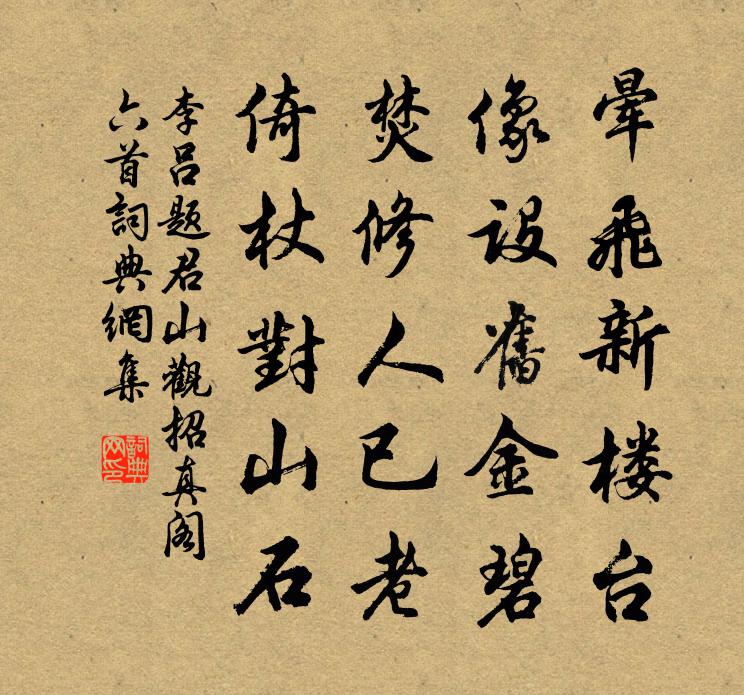 晕飛新楼台
像設舊金碧
焚修人已老
倚杖對山石
李吕題君山觀招真阁
六首詞典網集
詞典网印